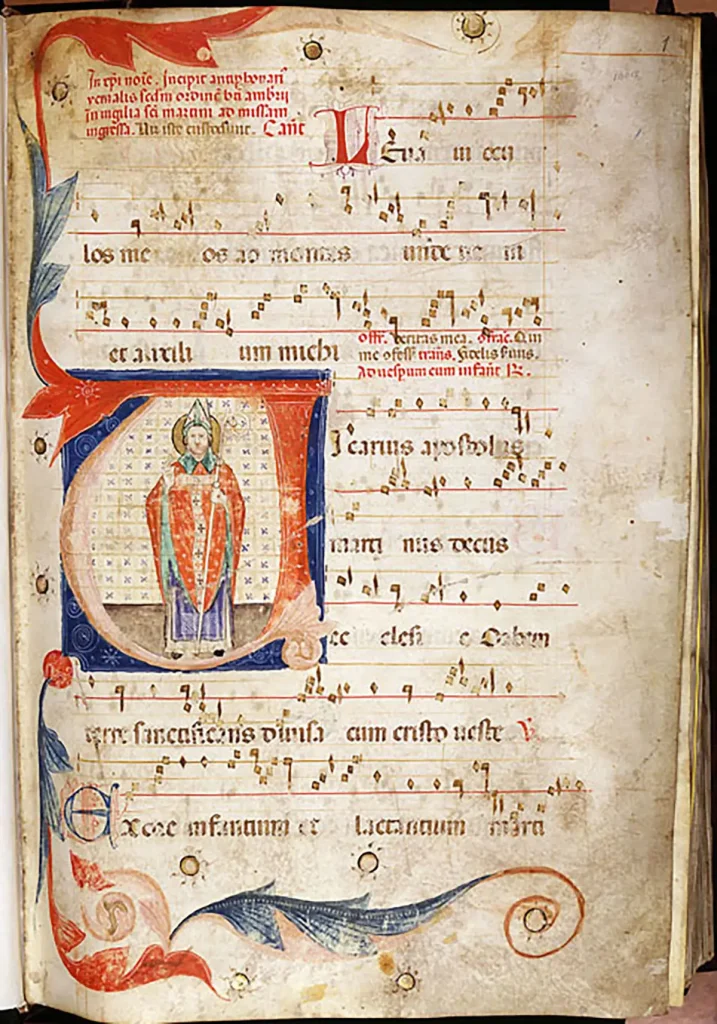 1
In xpi noie. Incipit antiphonari
yemalis scdm ordine bti ambrii
in uigilia sci martini ad missam
ingressa. Cant
LEuaui occu
los meos ad montes unde ueni
et auxilium michi
offr. Veritas mea. offae. Qui
me ofess trans. fidelis suus.
Ad uesperum cum infant R.
Uicarius apostolus
martinus decus
ecclesie Orbem
terre sanctificans diuisa cum cristo ueste V
Ex ore infantium et lactantium marti